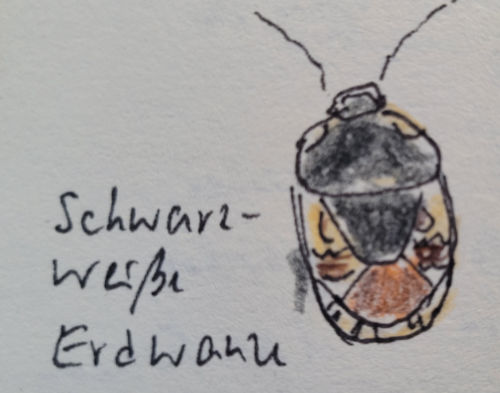 Schwarz-
weiße
Erdwanze